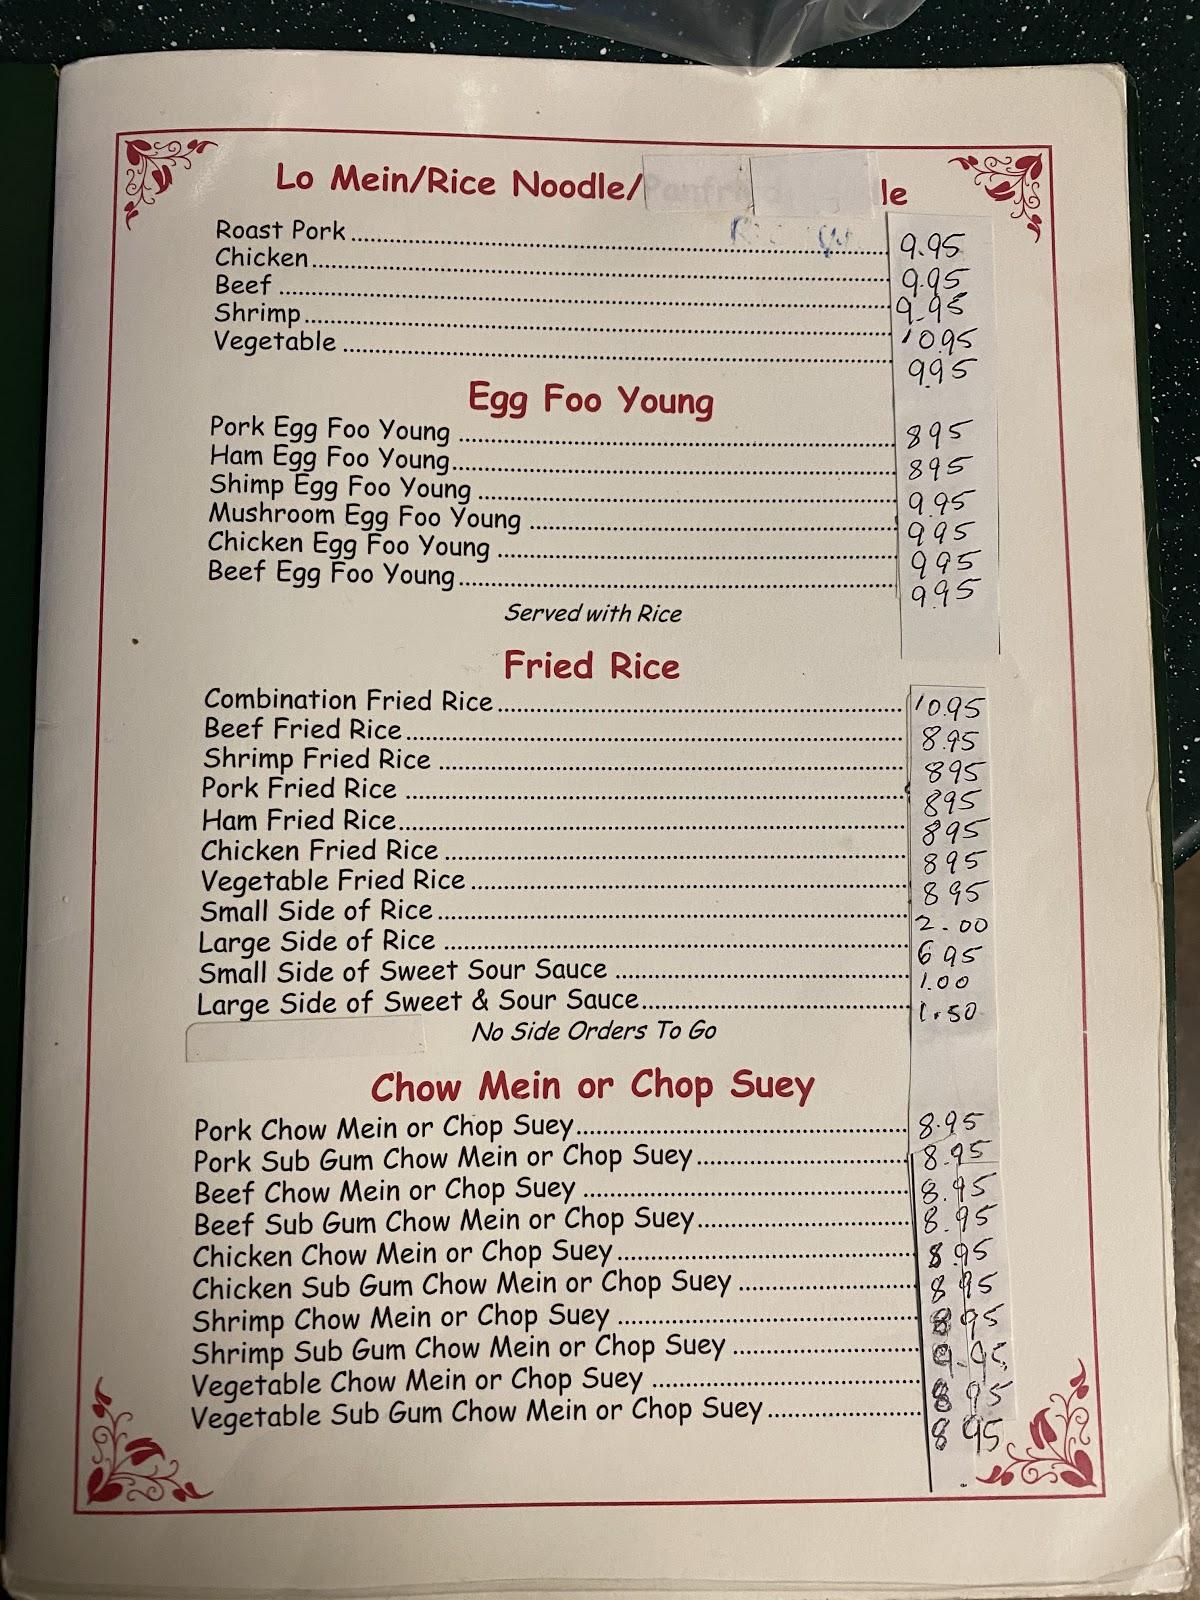 Lo Mein/Rice Noodle/ le
Roast Pork 9.95
Chicken 9.95
Beef 9.95
Shrimp 10.95
Vegetable 9.95
Egg Foo Young
Pork Egg Foo Young 8 95
Ham Egg Foo Young 8 95
Shimp Egg Foo Young 9.95
Mushroom Egg Foo Young 9 95
Chicken Egg Foo Young 9 95
Beef Egg Foo Young 9 95
Served with Rice
Fried Rice
Combination Fried Rice 10.95
Beef Fried Rice 8.95
Shrimp Fried Rice 8 95
Pork Fried Rice 8 95
Ham Fried Rice 8 95
Chicken Fried Rice 8 95
Vegetable Fried Rice 8 95
Small Side of Rice 2.00
Large Side of Rice 6 95
Small Side of Sweet Sour Sauce 1.00
Large Side of Sweet & Sour Sauce 1.50
No Side Orders To Go
Chow Mein or Chop Suey
Pork Chow Mein or Chop Suey 8.95
Pork Sub Gum Chow Mein or Chop Suey 8.95
Beef Chow Mein or Chop Suey 8.95
Beef Sub Gum Chow Mein or Chop Suey 8.95
Chicken Chow Mein or Chop Suey 8.95
Chicken Sub Gum Chow Mein or Chop Suey 8 95
Shrimp Chow Mein or Chop Suey 8 95
Shrimp Sub Gum Chow Mein or Chop Suey 9.95
Vegetable Chow Mein or Chop Suey 8 95
Vegetable Sub Gum Chow Mein or Chop Suey 8 95